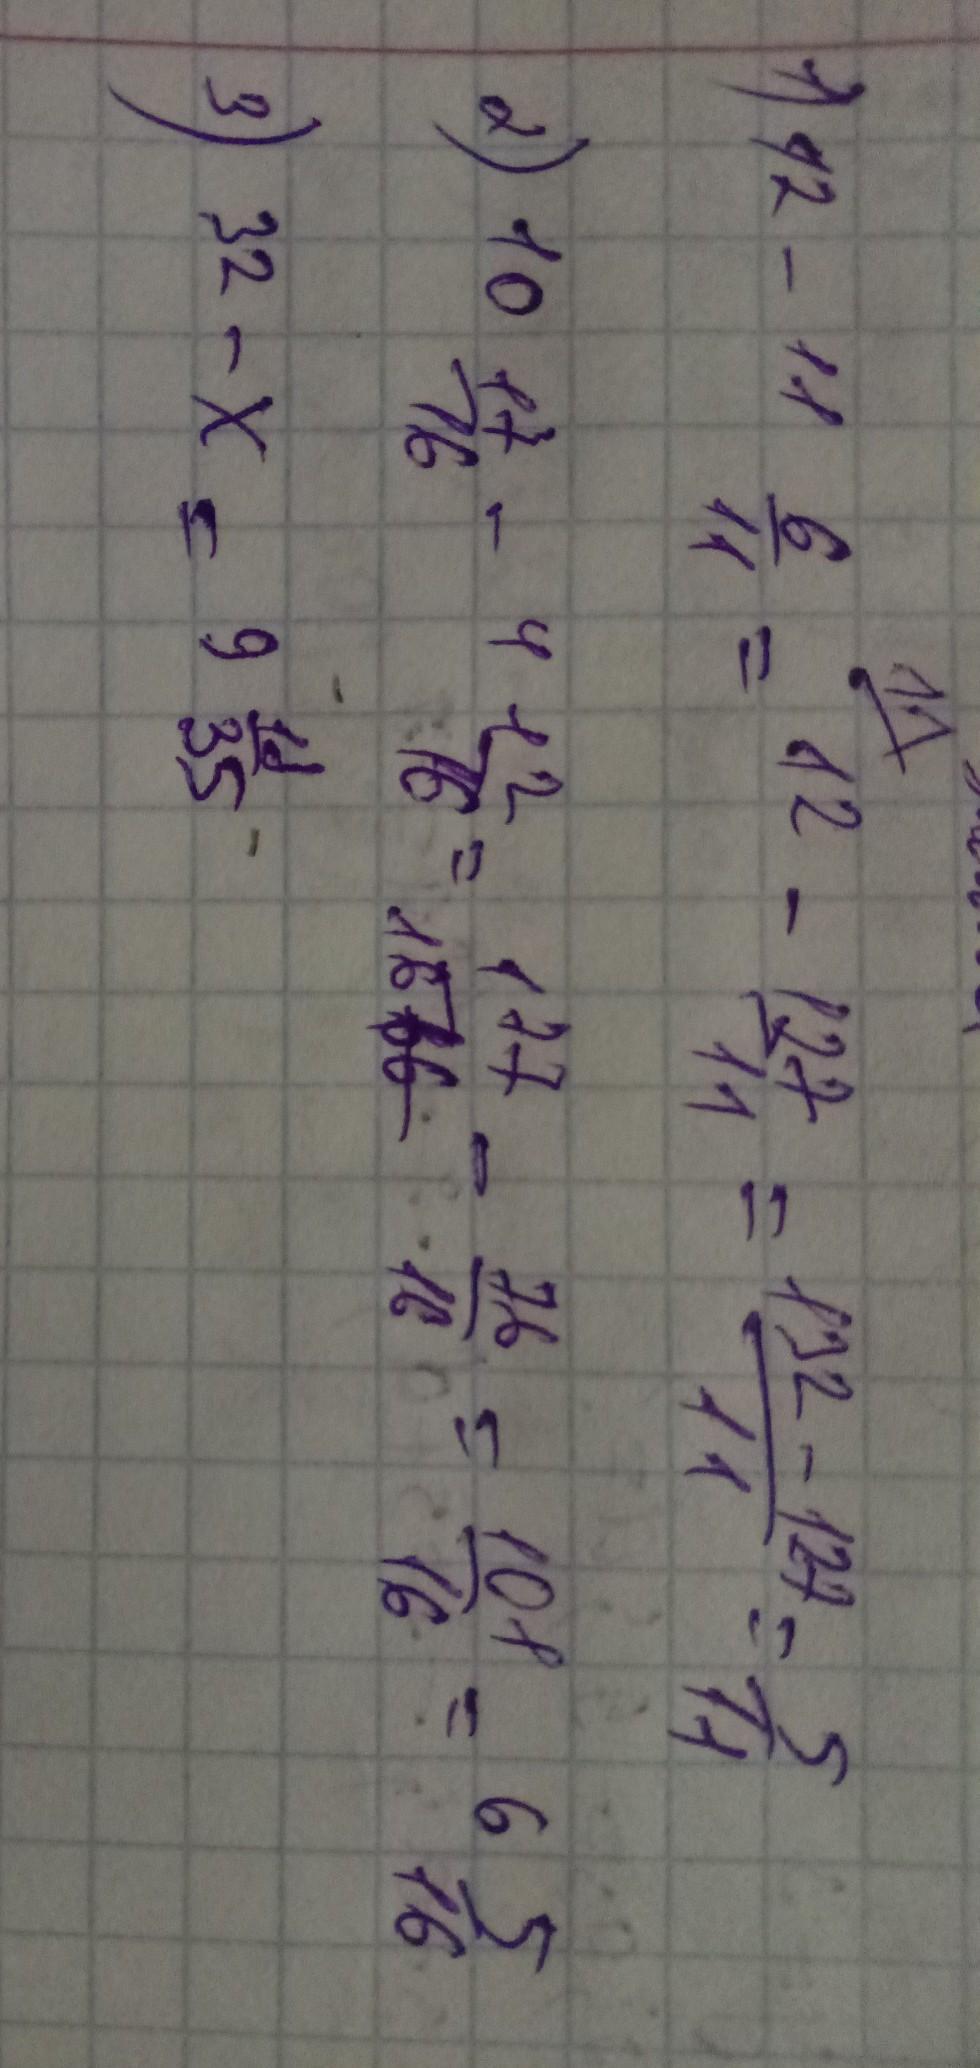 1) 12 - 11 6/11 = 12 - 127/11 = 132-127/11 = 5/11
2) 10 17/16 - 4 12/16 = 177/16 - 76/16 = 101/16 = 6 5/16
3) 32 - x = 9